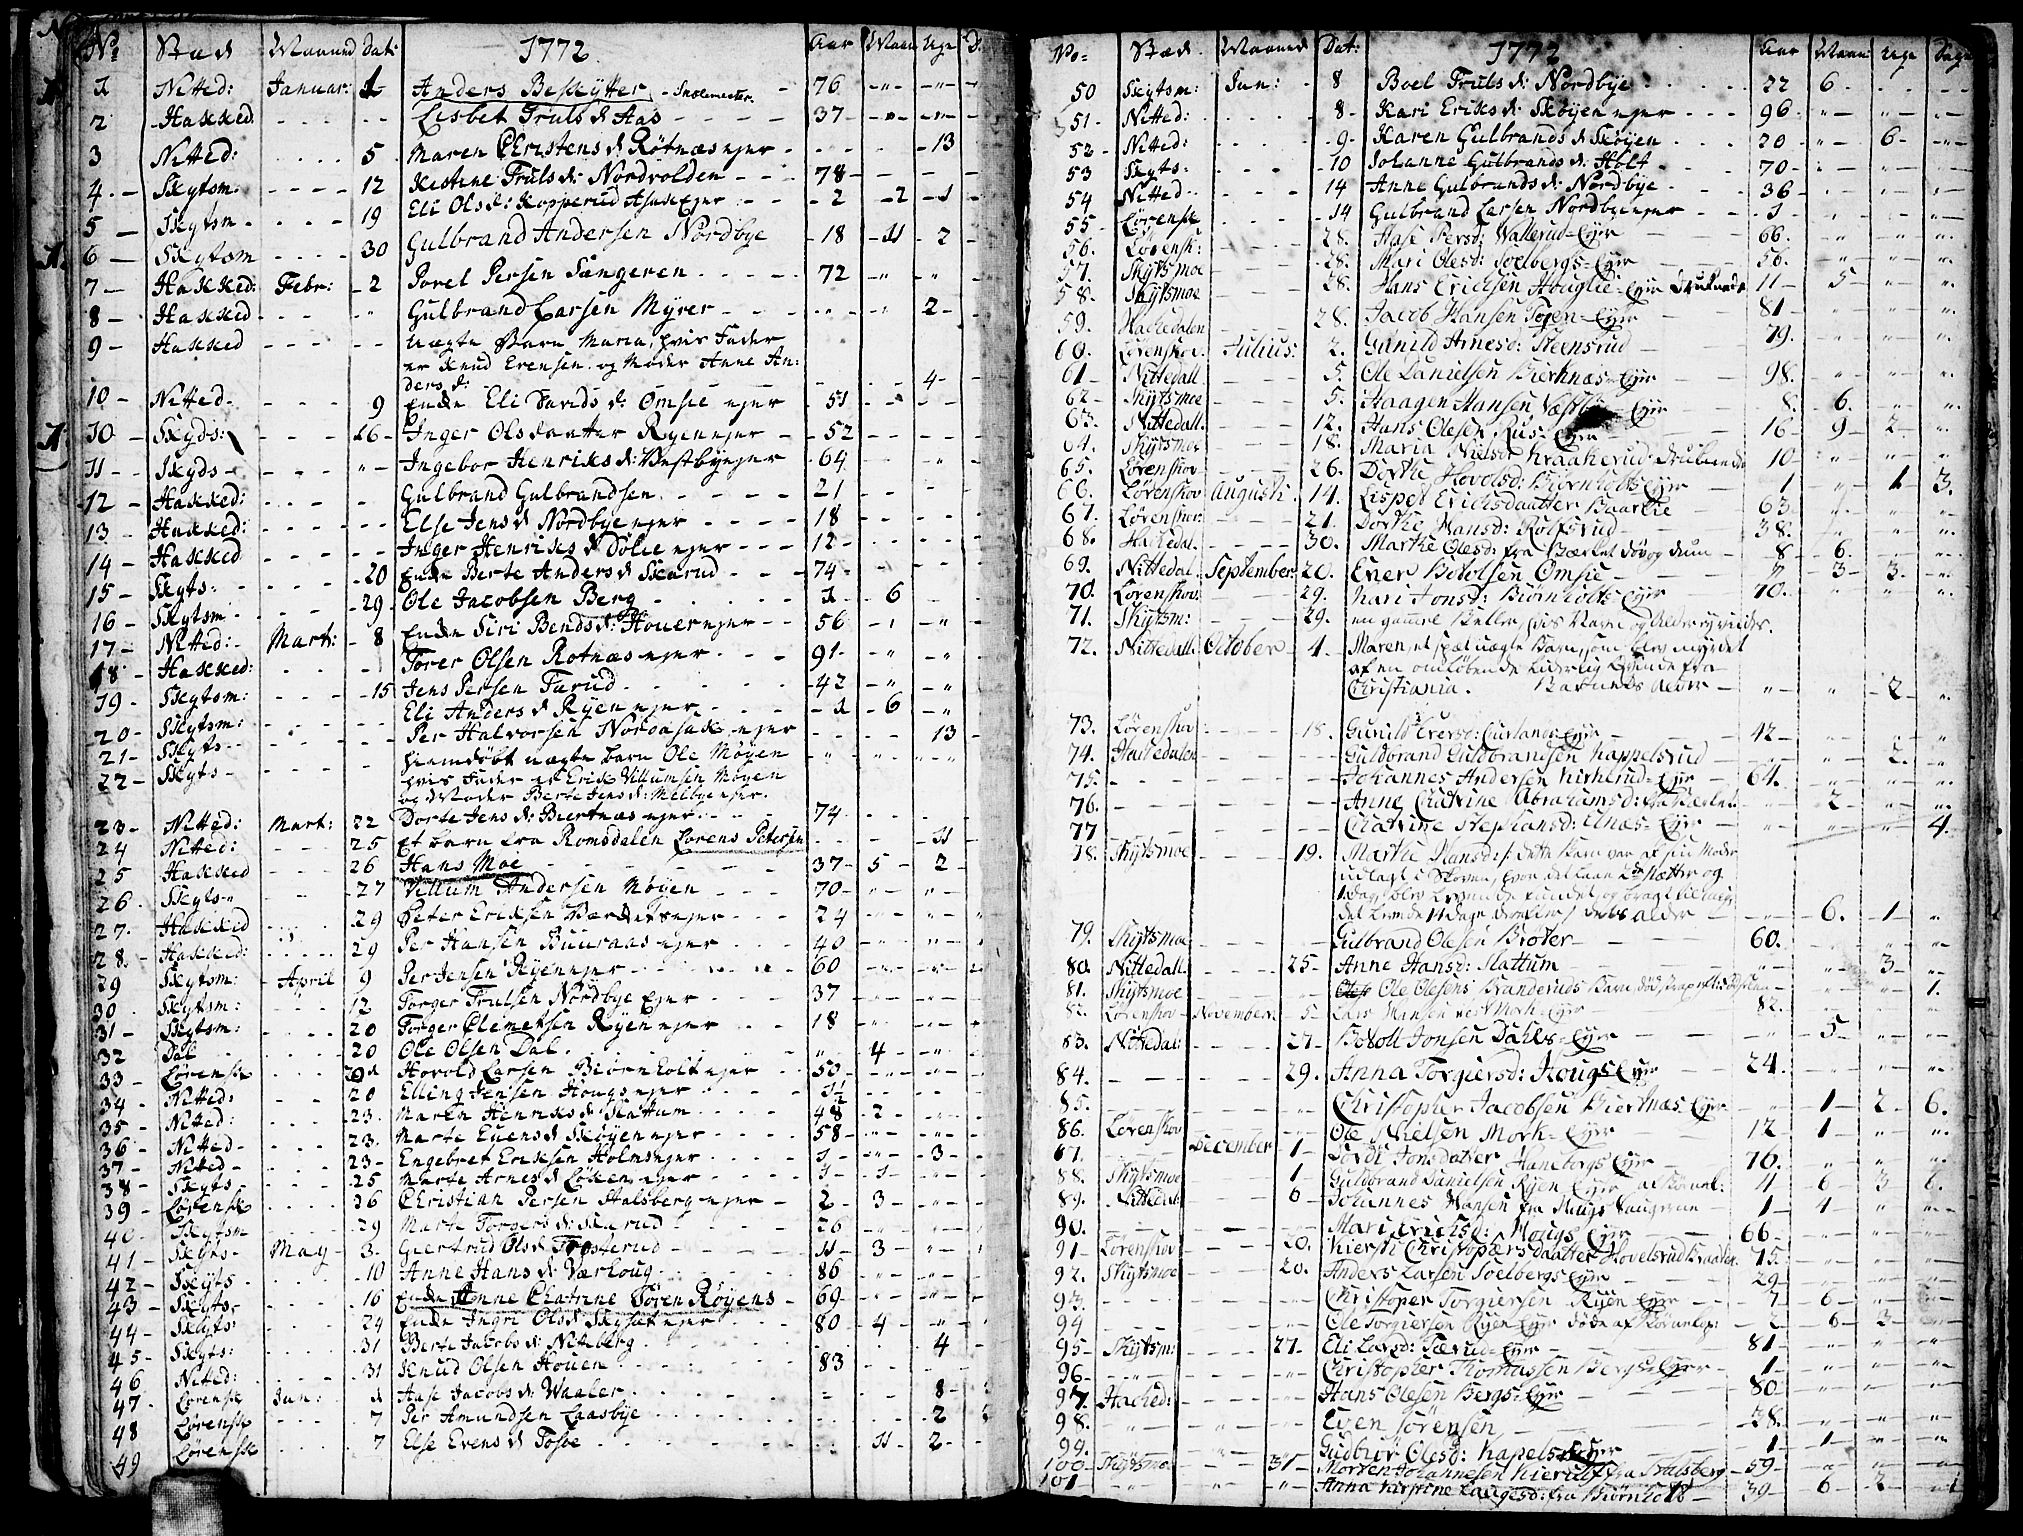 No Stad Maaned Dat: 1772 Aar Maan Uge D.
1 Nitted: Januar: 1 Anders Beskytter - Skolemester 76
2 Hakked 37
3 Nitted: 5 Maren Christens d. Røtnæs ejer 13
4 Skytsm: 12 Kistine Truls d: Nordvolden 78
5 Skytsm 19 Eli Ols d: Kopperud 2 2 1
6 Skytsm 30 Gulbrand Andersen Nordbye 18 11 2
7 Hakked: Febr: 2 Jorel Persen Sangeren 72
8 Hakked Gulbrand Larsen Myrer 2
9 Hakked uægte Barn Maria, hvis Fader
er Knud Evensen og Moder Anne An-
ders d: 4
10 Nitted 9 Enke Eli Davids d: Ømsie ejer 51
10 Skyds: 16 Inger Olsdaatter Ryen ejer 52
11 Skyds Ingebor Henriks d: Vestbye ejer 64
12 Hakked: Gulbrand Gulbrandsen 21
13 Hakked: Else Jens d. Nordbye ejer 18
14 Hakked Inger Henriks d Dølie ejer 12
15 Skyts: 20 Enke Berte Anders d Skarud 74
16 Skytsm 29 Ole Jacobsen Berg 1 6
17 Nitted: Mart: 8 Enke Siri Bends d: Houer ejer 56
18 Hakked: Torer Olsen Rotnæs ejer 91
19 Skytsm: 15 Jens Persen Farud 42
20 Skytsm: Eli Anders d Ryen ejer 1 6
21 Skyts Per Halvorsen ejer 13
22 Skyts hjemdøbt uægte barn Ole Møyen
hvis Fader er Erik Villumsen Møyen
og Moder Berte Jens d: Melbye ejer.
23 Nitted: Mart: 22 Dorte Jens d: Biertnæs ejer 74
24 Nitted: 25 Et barn fra Romsdalen Lorens Petersen 11
25 Hakked 26 Hans Moe 37 5 2
26 Skyts 27 Villum Andersen Møyen 70
27 Hakked 29 Peter Eriksen ejer 24
28 Hakked: 29 Per Hansen Buuraas ejer 40
29 Skytsm: April 9 Per Jensen Ryen ejer 60
30 Skytsm: 12 Torger Trulsen Nordbye Ejer 37
31 Skytsm: 20 Torger Clemetsen Ryen ejer 18
32 Dal 20 Ole Olsen Dal 4
33 Lørensk Hovold Larsen Biørnholt ejer 50
34 Nitted: 20 Elling Jensen Hougs ejer 1½
35 Nitted: 23 Maren Henriks d: Slattum 48 2
36 Nitted 23. Marte Evens d Skøyen ejer 58
37 Nitted 23 Engebret Eriksen Holms ejer 1 3
38 Skyts 25 Marte Arnes d Løken ejer 1 1
39 Lørensk 26 Christian Persen Stalsberg ejer 2 3
40 Skytsm 29 Marte Torgers d: Skarud 26
41 Skyts May 3 Giertrud Ols d. Trosterud 11 3
42 Skyts 10 Anne Hans d: Værhoug 86
43 Skyts 16 Enke Anne Chatrine Søren Røyens 69
44 Skyts: 24 Enke Ingri Ols d ejer 80 4
45 Skyts: 31 Berte Jakobs d: Niteberg 4
46 Nitted: 31 Knud Olsen Houen 83
47 Lørensk Jun: 1 Aase Jacobs d: Waaler 8
48 Lørensk 7 Per Amundsen Laasbye 2
49 Lørensk 7 Else Evens d Tosee 11 2
No= Stæd Maaned Dat: 1772 Aar Maan: Uge Dage
50 Skytsm: Jun: 8 Boel Truls d: Nordbye 22 6
51 Nitted: 8 Kari Eriks d: Skøyen ejer 96
52 Nitted: 9 Karen Gulbrands d: Skøyen 20 6
53 Skyts: 10 Johanne Gulbrands d: Holt 70
54 Nitted 14 Anne Gulbrands d: Nordbye 36
55 Lørensk 14 Gulbrand Larsen Nordbye ejer 1
56. Lørensk: 28. Aase Persd: Wallerud=Ejer 66.
57. Skytsmoe 28. Mari Olesd: Soelbergs=Ejer 56.
58. Skytsmoe 28. Hans Erichsen Houglie=Ejer Druknede 11 5
59. Hachedalen 28. Jacob Hansen Tøyen=Ejer 81
60. Lørenskov Julius: 2. Gunild Arnesd: Steensrud 79.
61 Nittedall 5. Ole Danielsen Bierknæs=Ejer 98.
62 Skytsmoe 5. Haagen Hansen Ejer 8. 6.
63. Nittedall. 12. Hans Olesen Rus=Ejer 16 9 2
64. Skytsmoe 18. Maria Nielsd: Kraakerud druknede 10
65. Lørenskov 26. Dorthe Hovelsd: Biørnholts Ejer 1 1 3.
66. Lørenskov Augusti 14. Lispet Erichsdaatter Baarlie 63
67. Lørenskov 21. Dorthe Hansd: Rolfsrud 38.
68. Hachedal. 30. Marthe Olesd: fra døv og dum 8 6.
69. Nittedal September: 20. Ever Botolsen Ømsie 3 3
70. Lørenskov 29. Mari Jonsd: Biørnholts Ejer 70.
71. Skytsm: 29. en gammel Kelling hvis Navn og Alder ey vides.
72. Nittedall October 4. Maren, et spæt uægte Barn, som blev myrdet
af en omløbende Liderlig Qvinde fra
Christiania. Barnets Alder 2
73. Lørenskov 18. Gunild Eversd: Curlands=Ejer 42
74. Hachedalen Guldbrand Guldbrandsen Kappelsrud 2
75. Johannes Andersen Kirkerud=Ejer 64.
76. Anne Chatrine Abrahamsd: 2
77 Chatrine Stephansd: Elnæs=Ejer 4.
78. Skytsmoe 19. Marthe Hansd: /: dette Barn var af sin Moder
udlagt i Skoven, hvor det laae 2 Nætter og
1 dag, blev levende fundet, og bragt til
det levede 14 dage derefter :/ dets alder 6. 1
79. Skytsmoe Gulbrand Olesen Brøter 60.
80. Nittedall 25 Anne Hansd: Slattum 3
81. Skytsmoe Ole Olesens Branderuds Barn død strax efter 1.
82. Lørenskov November. 5. Lars Hansen Mork=Ejer 82.
83. Nittedal: 27 Botoll Jonsen Dahls=Ejer 5
84. 29. Anna Torgiersd: Hougs=Ejer 24.
85. Christopher Jacobsen Biertnæs=Ejer 1 2 6.
86. Lørenskov Ole Nielsen Mork=Ejer 12 1
87. December 1 Jordi Jonsdatter Hanebergs Ejer 76.
88. Skytsmoe 1 Guldbrand Danielsen Ryen Ejer 4 6 3 6.
89. Nittedal: 6 Johannes Hansen fra Hougs 1 4
90. Mari Erichsd: Hougs Ejer 66
91 Lørenskov 20. Kiersti Christophersdaatter Hovelsrud 75.
92. Skytsmoe 20. Anders Larsen Soelbergs=Ejer 29
93. Christoper Torgiersen Ryen Ejer 7 6
94 Ole Torgiersen Ryen Ejer døde af 2 6 3
95 Skytsm: 27. Eli Larsd: Tærud=Ejer 81
96 Christopher Thomassen Bergs=Ejer 1
97. Hached: Hans Olesen Bergs=Ejer 80
98. Even Sørensen 38.
99. Gudbiør Olesd: Kapels Ejer 1 1
100 Skytsmo 31 Morten Johannesen Kierulf fra Stalsberg 59
101 Anna Kirstine Laugesd: fra Biørnholt 39 6 2 1